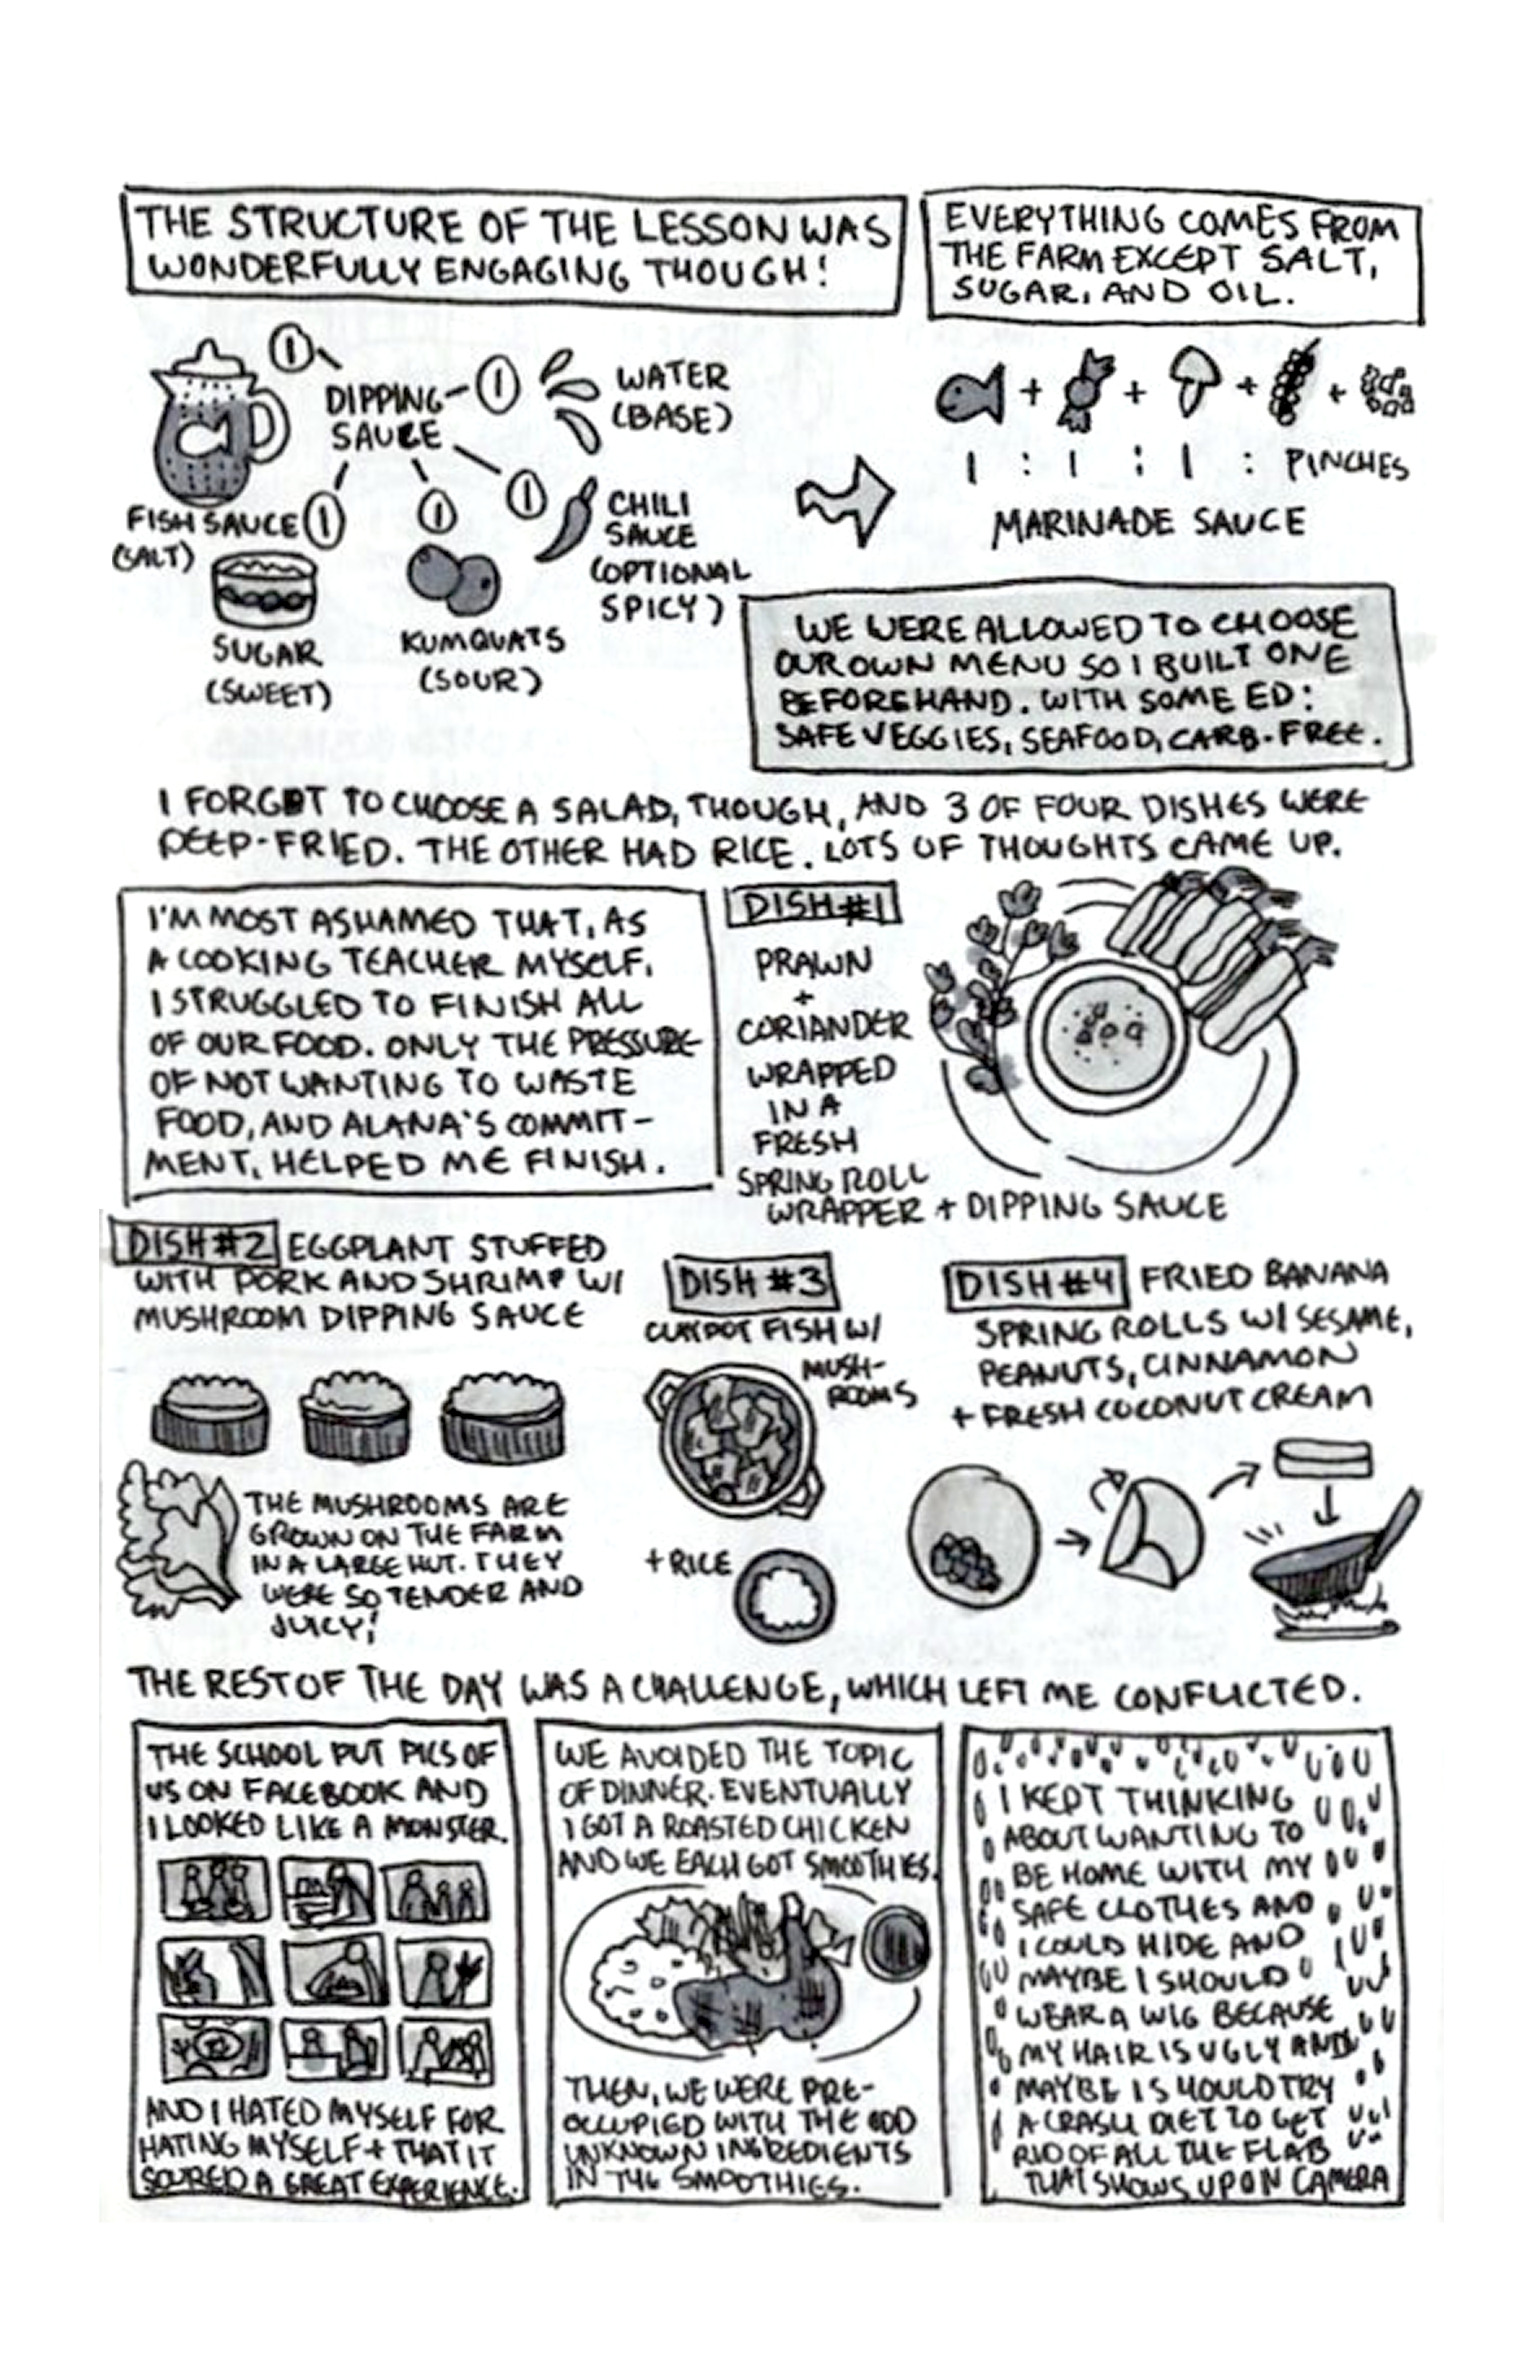 THE STRUCTURE OF THE LESSON WAS
WONDERFULLY ENGAGING THOUGH!
EVERYTHING COMES FROM
THE FARM EXCEPT SALT,
SUGAR, AND OIL.
1
DIPPING
SAUCE
1
WATER
(BASE)
FISH SAUCE
(SALT)
1
SUGAR
(SWEET)
1
KUMQUATS
(SOUR)
1
CHILI
SAUCE
(OPTIONAL
SPICY)
+ + + +
1 : 1 : 1 : PINCHES
MARINADE SAUCE
WE WERE ALLOWED TO CHOOSE
OUR OWN MENU SO I BUILT ONE
BEFOREHAND. WITH SOME ED:
SAFE VEGGIES, SEAFOOD, CARB-FREE.
I FORGOT TO CHOOSE A SALAD, THOUGH, AND 3 OF FOUR DISHES WERE
DEEP-FRIED. THE OTHER HAD RICE. LOTS OF THOUGHTS CAME UP.
I'M MOST ASHAMED THAT, AS
A COOKING TEACHER MYSELF,
I STRUGGLED TO FINISH ALL
OF OUR FOOD. ONLY THE PRESSURE
OF NOT WANTING TO WASTE
FOOD, AND ALANA'S COMMIT-
MENT, HELPED ME FINISH.
DISH #1
PRAWN
+
CORIANDER
WRAPPED
IN A
FRESH
SPRING ROLL
WRAPPER + DIPPING SAUCE
DISH #2 EGGPLANT STUFFED
WITH PORK AND SHRIMP W/
MUSHROOM DIPPING SAUCE
THE MUSHROOMS ARE
GROWN ON THE FARM
IN A LARGE HUT. THEY
WERE SO TENDER AND
JUICY!
DISH #3
CLAYPOT FISH W/
MUSH-
ROOMS
+ RICE
DISH #4 FRIED BANANA
SPRING ROLLS W/ SESAME,
PEANUTS, CINNAMON
+ FRESH COCONUT CREAM
THE REST OF THE DAY WAS A CHALLENGE, WHICH LEFT ME CONFLICTED.
THE SCHOOL PUT PICS OF
US ON FACEBOOK AND
I LOOKED LIKE A MONSTER.
AND I HATED MYSELF FOR
HATING MYSELF + THAT IT
SOURED A GREAT EXPERIENCE.
WE AVOIDED THE TOPIC
OF DINNER. EVENTUALLY
I GOT A ROASTED CHICKEN
AND WE EACH GOT SMOOTHIES.
THEN, WE WERE PRE-
OCCUPIED WITH THE ODD
UNKNOWN INGREDIENTS
IN THE SMOOTHIES.
I KEPT THINKING
ABOUT WANTING TO
BE HOME WITH MY
SAFE CLOTHES AND
I COULD HIDE AND
MAYBE I SHOULD
WEAR A WIG BECAUSE
MY HAIR IS UGLY AND
MAYBE I SHOULD TRY
A CRASH DIET TO GET
RID OF ALL THE FLAB
THAT SHOWS UP ON CAMERA